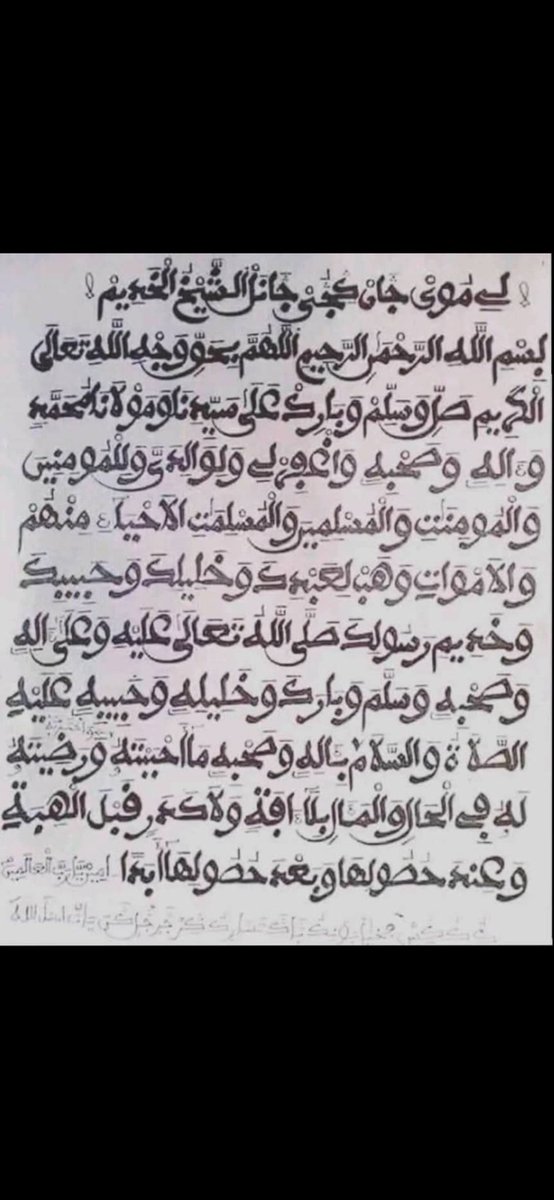 لِے مُويْ جَانْ كُجْيِ جَانَلْ الشَّيْخْ الْخَدِيمْ
بِسْمِ اللَّهِ الرَّحْمَنِ الرَّحِيمِ اللَّهُمَّ بِحَقِّ وَجْهِ اللَّهِ تَعَالَى
الْكَرِيمِ صَلِّ وَسَلِّمْ وَبَارِكْ عَلَى سَيِّدِنَا وَمَوْلَانَا مُحَمَّدٍ
وَءَالِهِ وَصَحْبِهِ وَاغْفِرْ لِے وَلِوَالِدَيَّ وَلِلْمُومِنِينَ
وَالْمُومِنَتِ وَالْمُسْلِمِينَ وَالْمُسْلِمَتِ الَاحْيَاءِ مِنْهُمْ
وَالَامْوَاتِ وَهَبْ لِعَبْدِكَ وَخَلِيلِكَ وَحَبِيبِكَ
وَخَدِيمِ رَسُولِكَ صَلَّى اللَّهُ تَعَالَى عَلَيْهِ وَعَلَى ءَالِهِ
وَصَحْبِهِ وَسَلَّمَ وَبَارَكَ وَخَلِيلِهِ وَحَبِيبِهِ عَلَيْهِ
الصَّلَاةُ وَالسَّلَامُ بِئَالِهِ وَصَحْبِهِ مَا أَحْبَبْتَهُ وَرَضِيتَهُ
لَهُ فِے الْحَالِ وَالْمَالِ بِلَا ءَافَةٍ وَلَا كَدَرٍ قَبْلَ الْهِبَةِ
وَعِنْدَ حُصُولِهَا وَبَعْدَ حُصُولِهَا أَبَدًا ءَامِينَ يَارَبَّ الْعَالَمِينَ